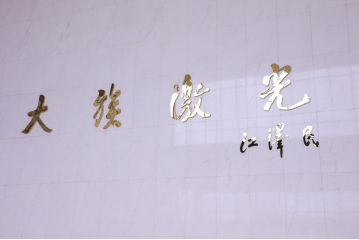 大族激光
江泽民